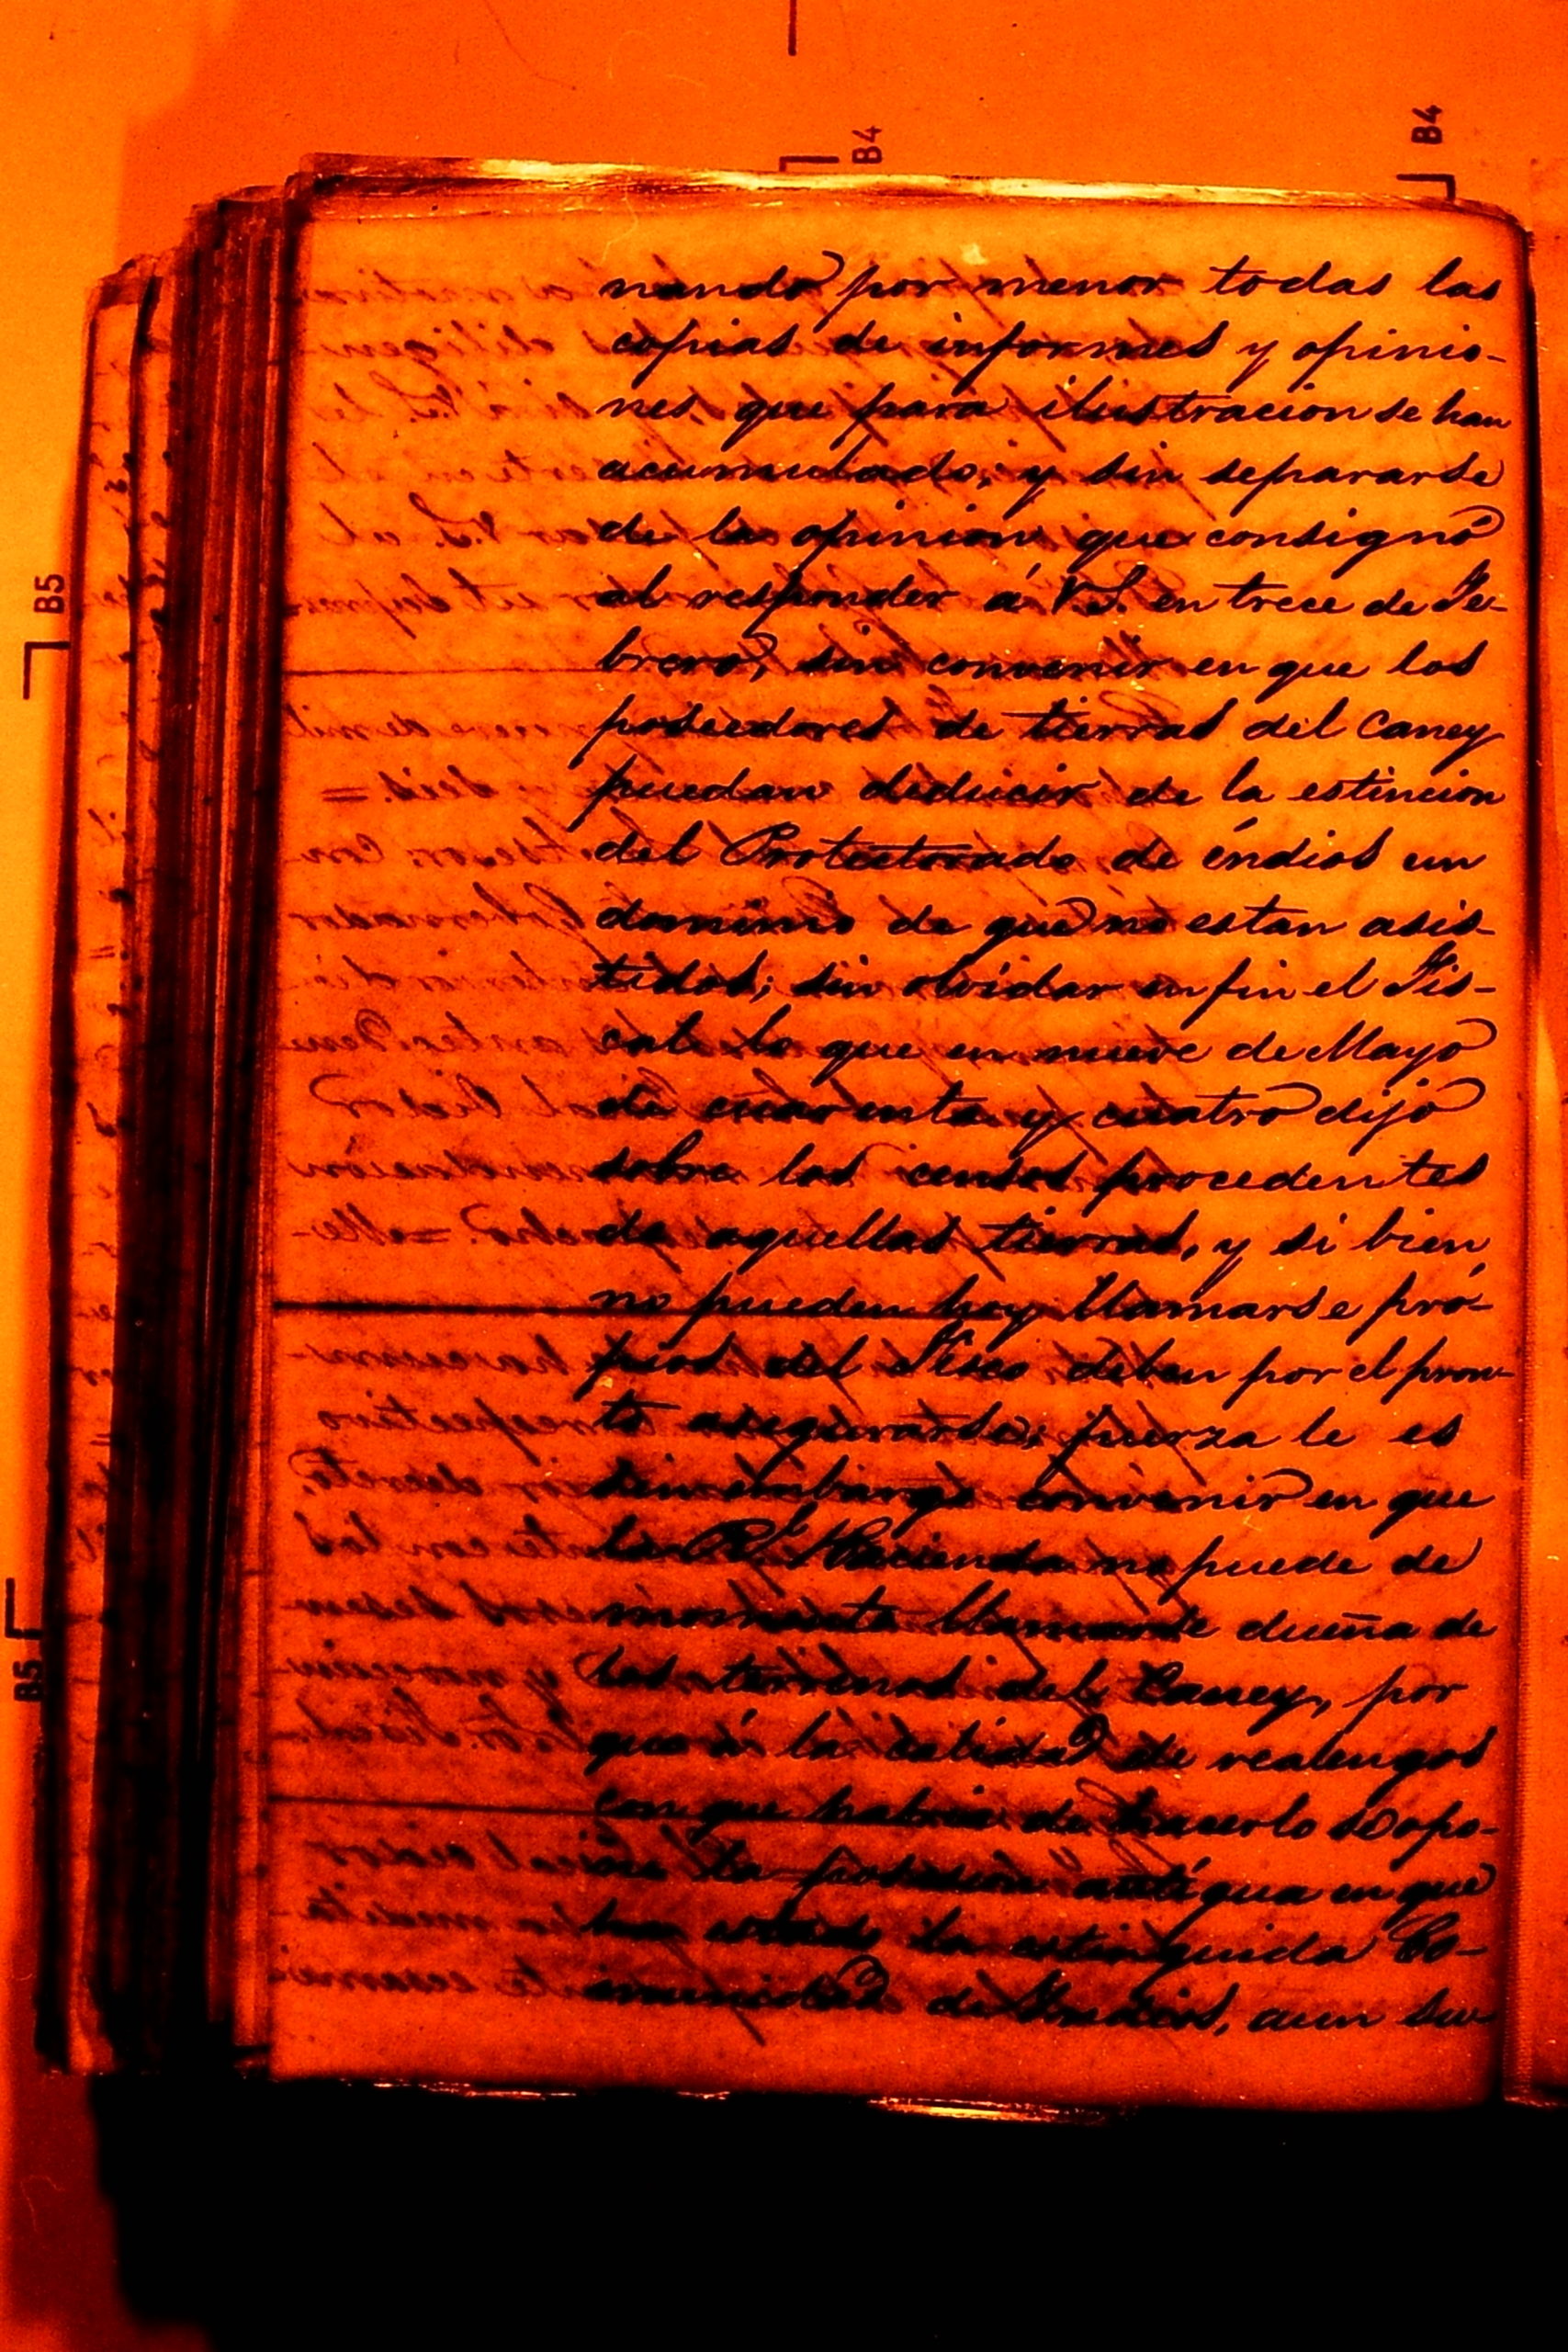 B4
B4
B5
B5
nando por menor todas las
copias de informes y opinio-
nes que para ilustracion se han
acumulado; y sin separarse
de la opinion que consignó
al responder á V.S. en trece de Fe-
brero, sin convenir en que los
poseedores de tierras del Caney
puedan deducir de la estincion
del Protectorado de indios un
dominio de que no estan asis-
tidos; sin olvidar en fin el Fis-
cal lo que en nueve de Mayo
de cuarenta y cuatro dijo
sobre los censos procedentes
de aquellas tierras, y si bien
no pueden hoy llamarse pró-
pios del Fisco deben por el pron-
to asegurarse; fuerza le es
sin embargo convenir en que
la Rl. Hacienda no puede de
momento llamarse dueña de
los terrenos del Caney, por
que á la calidad de realengos
con que habria de hacerlo se opo-
ne la posesion antigua en que
han estado la estinguida Co-
munidad de Indios, aun su